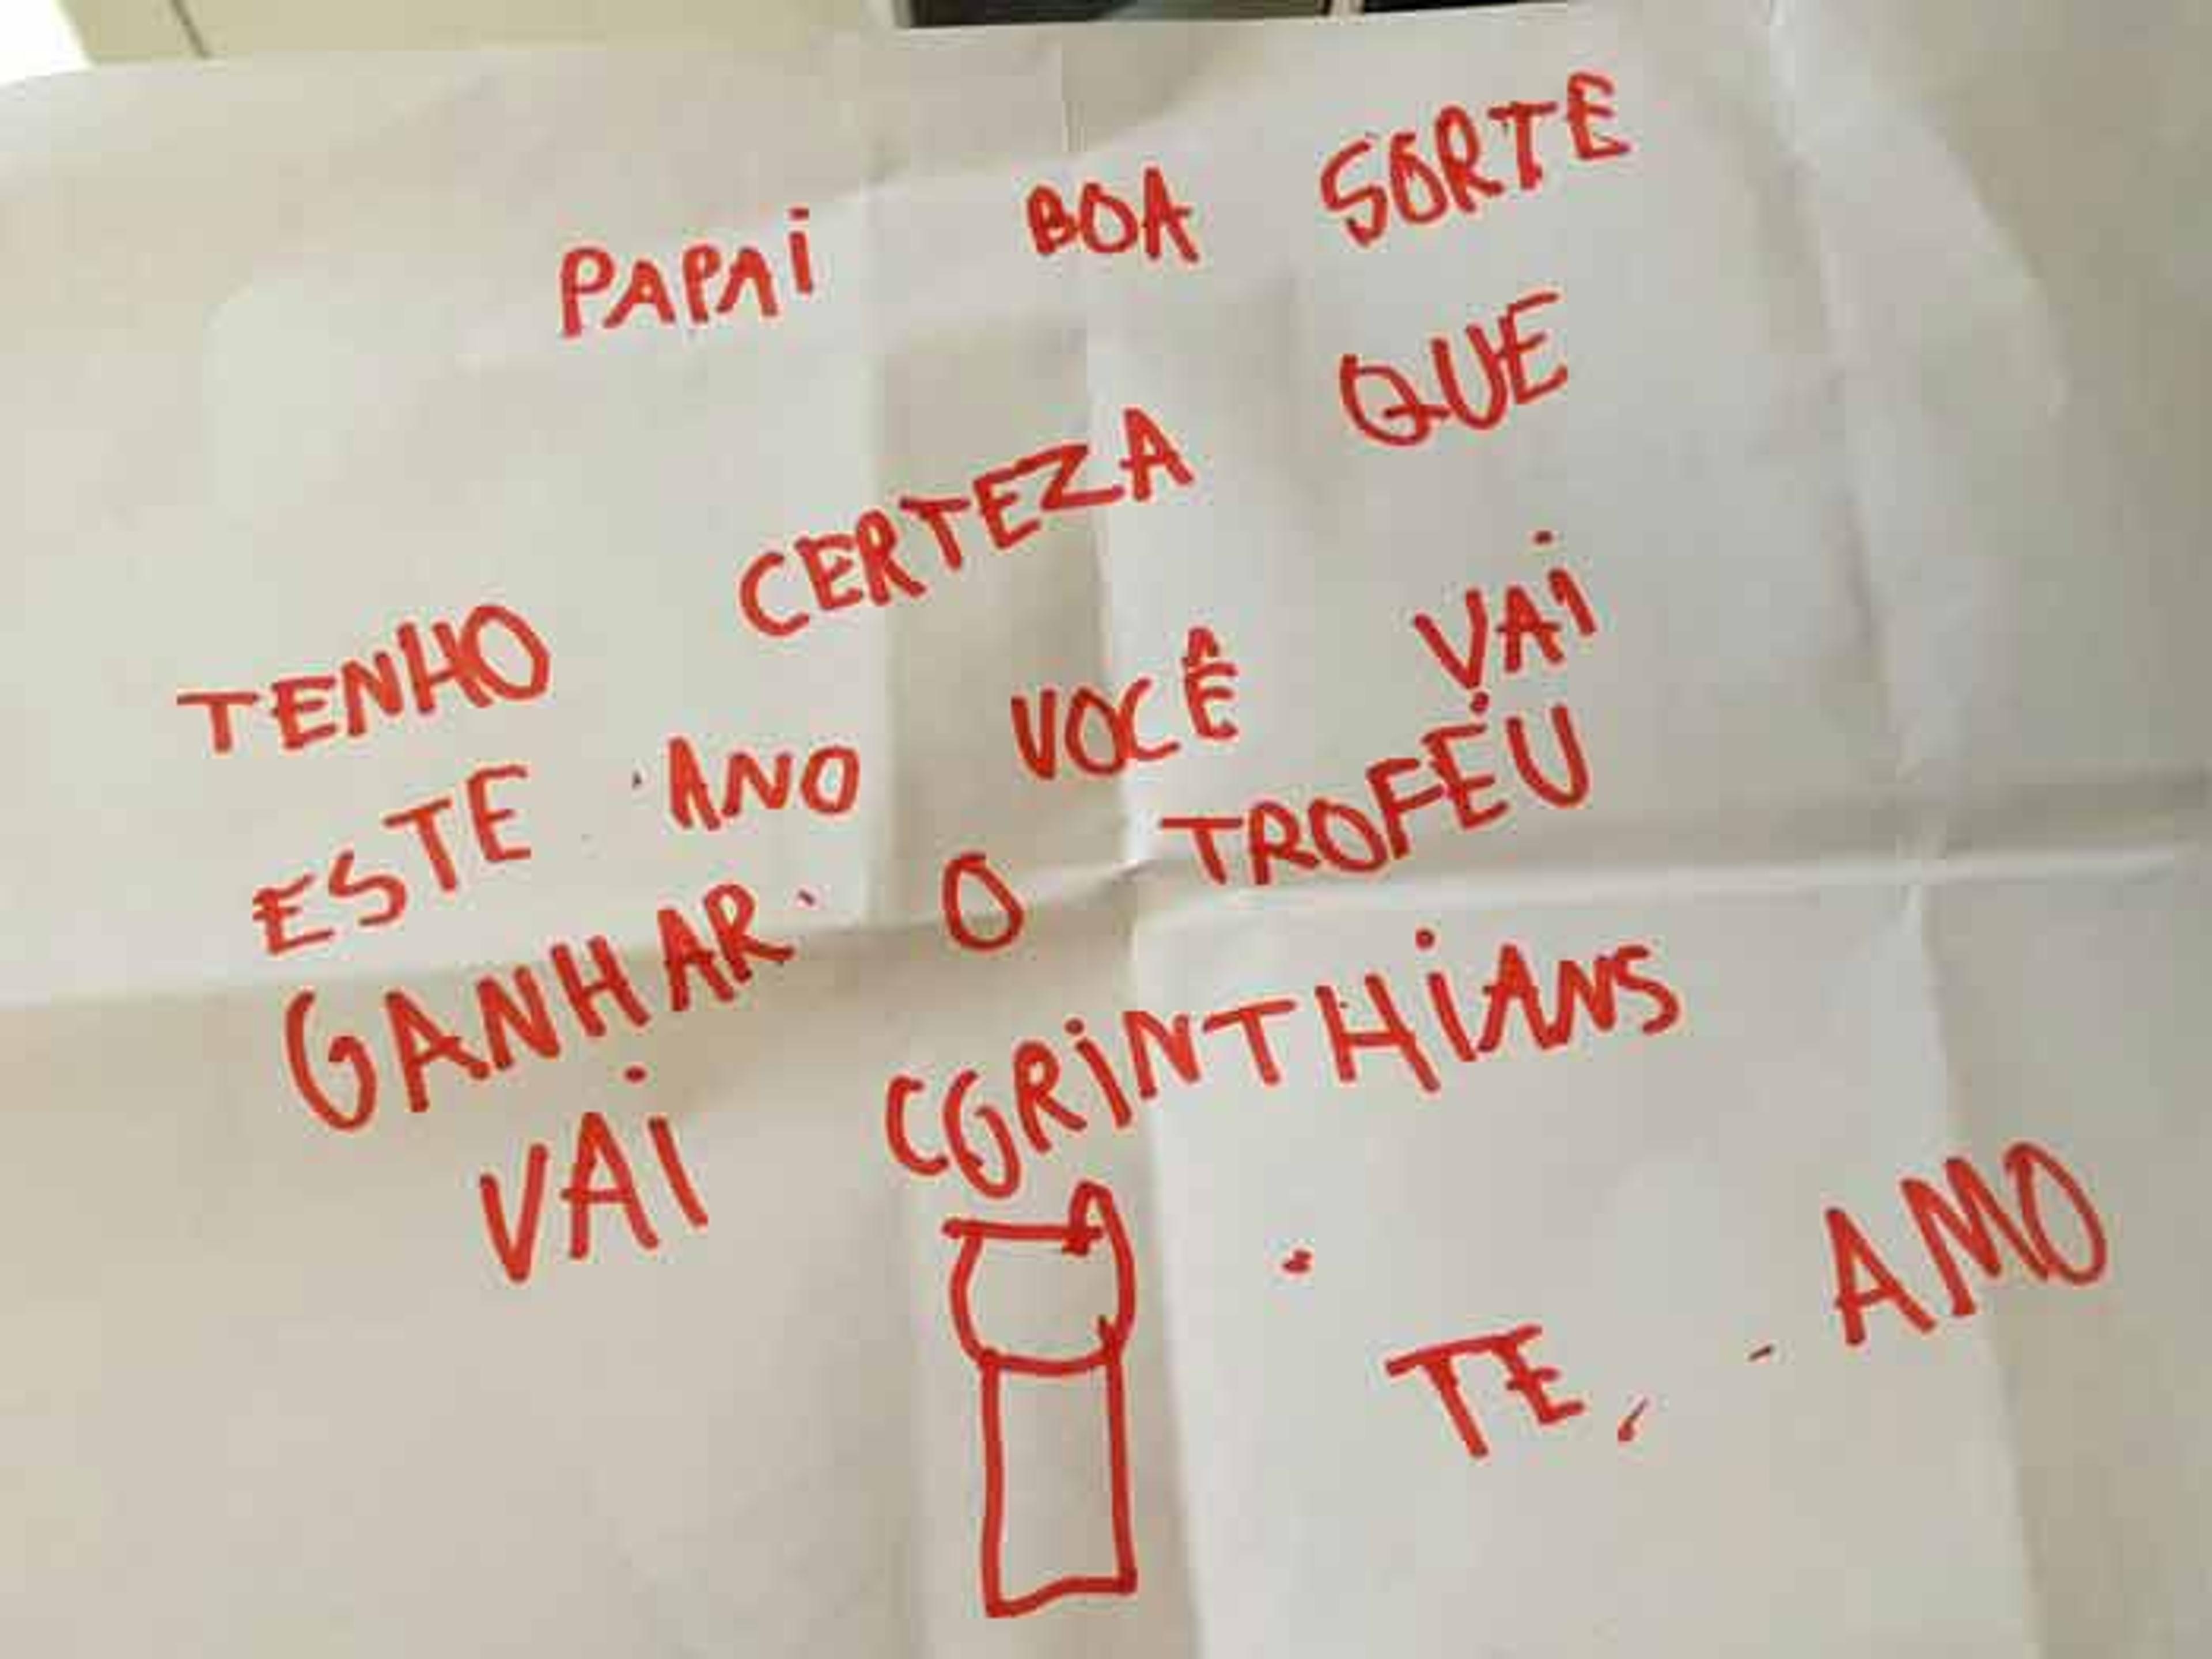 PAPAi BOA SORTE
TENHO CERTEZA QUE
ESTE ANO VOCÊ VAi
GANHAR O TROFÉU
VAi CORiNTHiANS
TE AMO